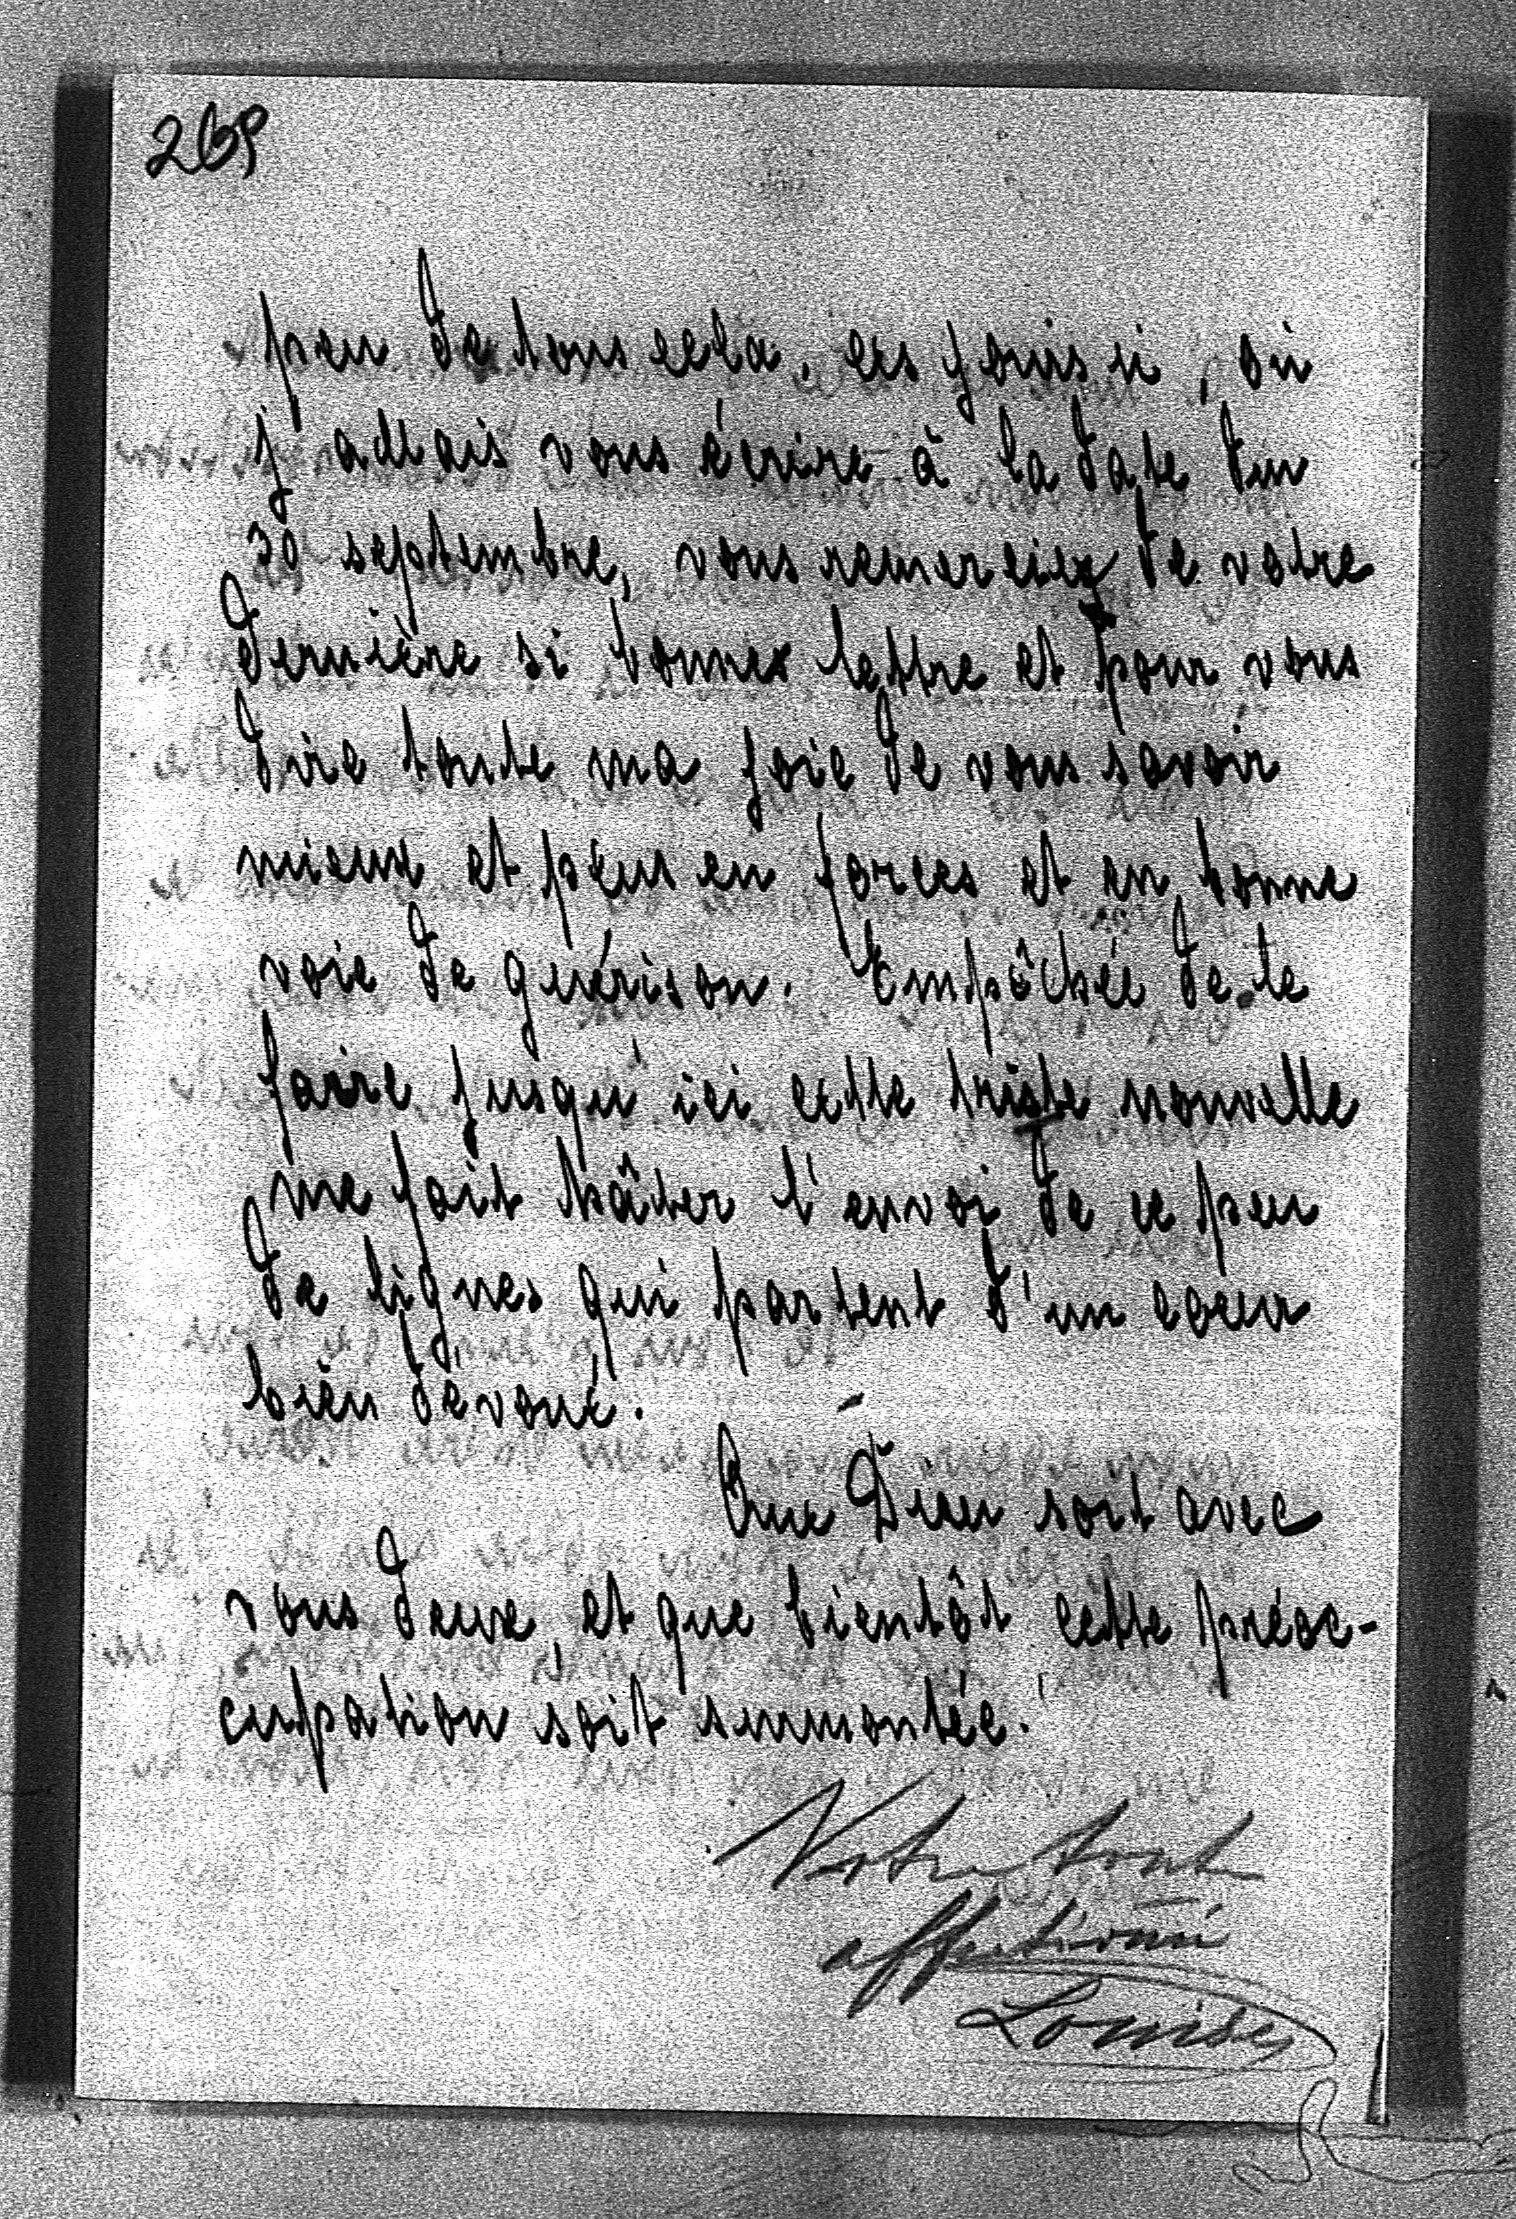 269
peu de tous cela. ces jours ci, où
j'allais vous écrire à la date du
30 septembre, vous remerciez de votre
dernière si bonnes lettre et pour vous
dire toute ma joie de vous savoir
mieux et plus en forces et en bonne
voie de guérison. Empêchée de le
faire jusqu'ici cette triste nouvelle
me fait hâter l'envoi de ce peu
de lignes qui partent d'un coeur
bien dévoué.
Que Dieu soit avec
vous deux, et que bientôt cette préoc-
cupation soit surmontée.
Votre tout
affectionné
Louise